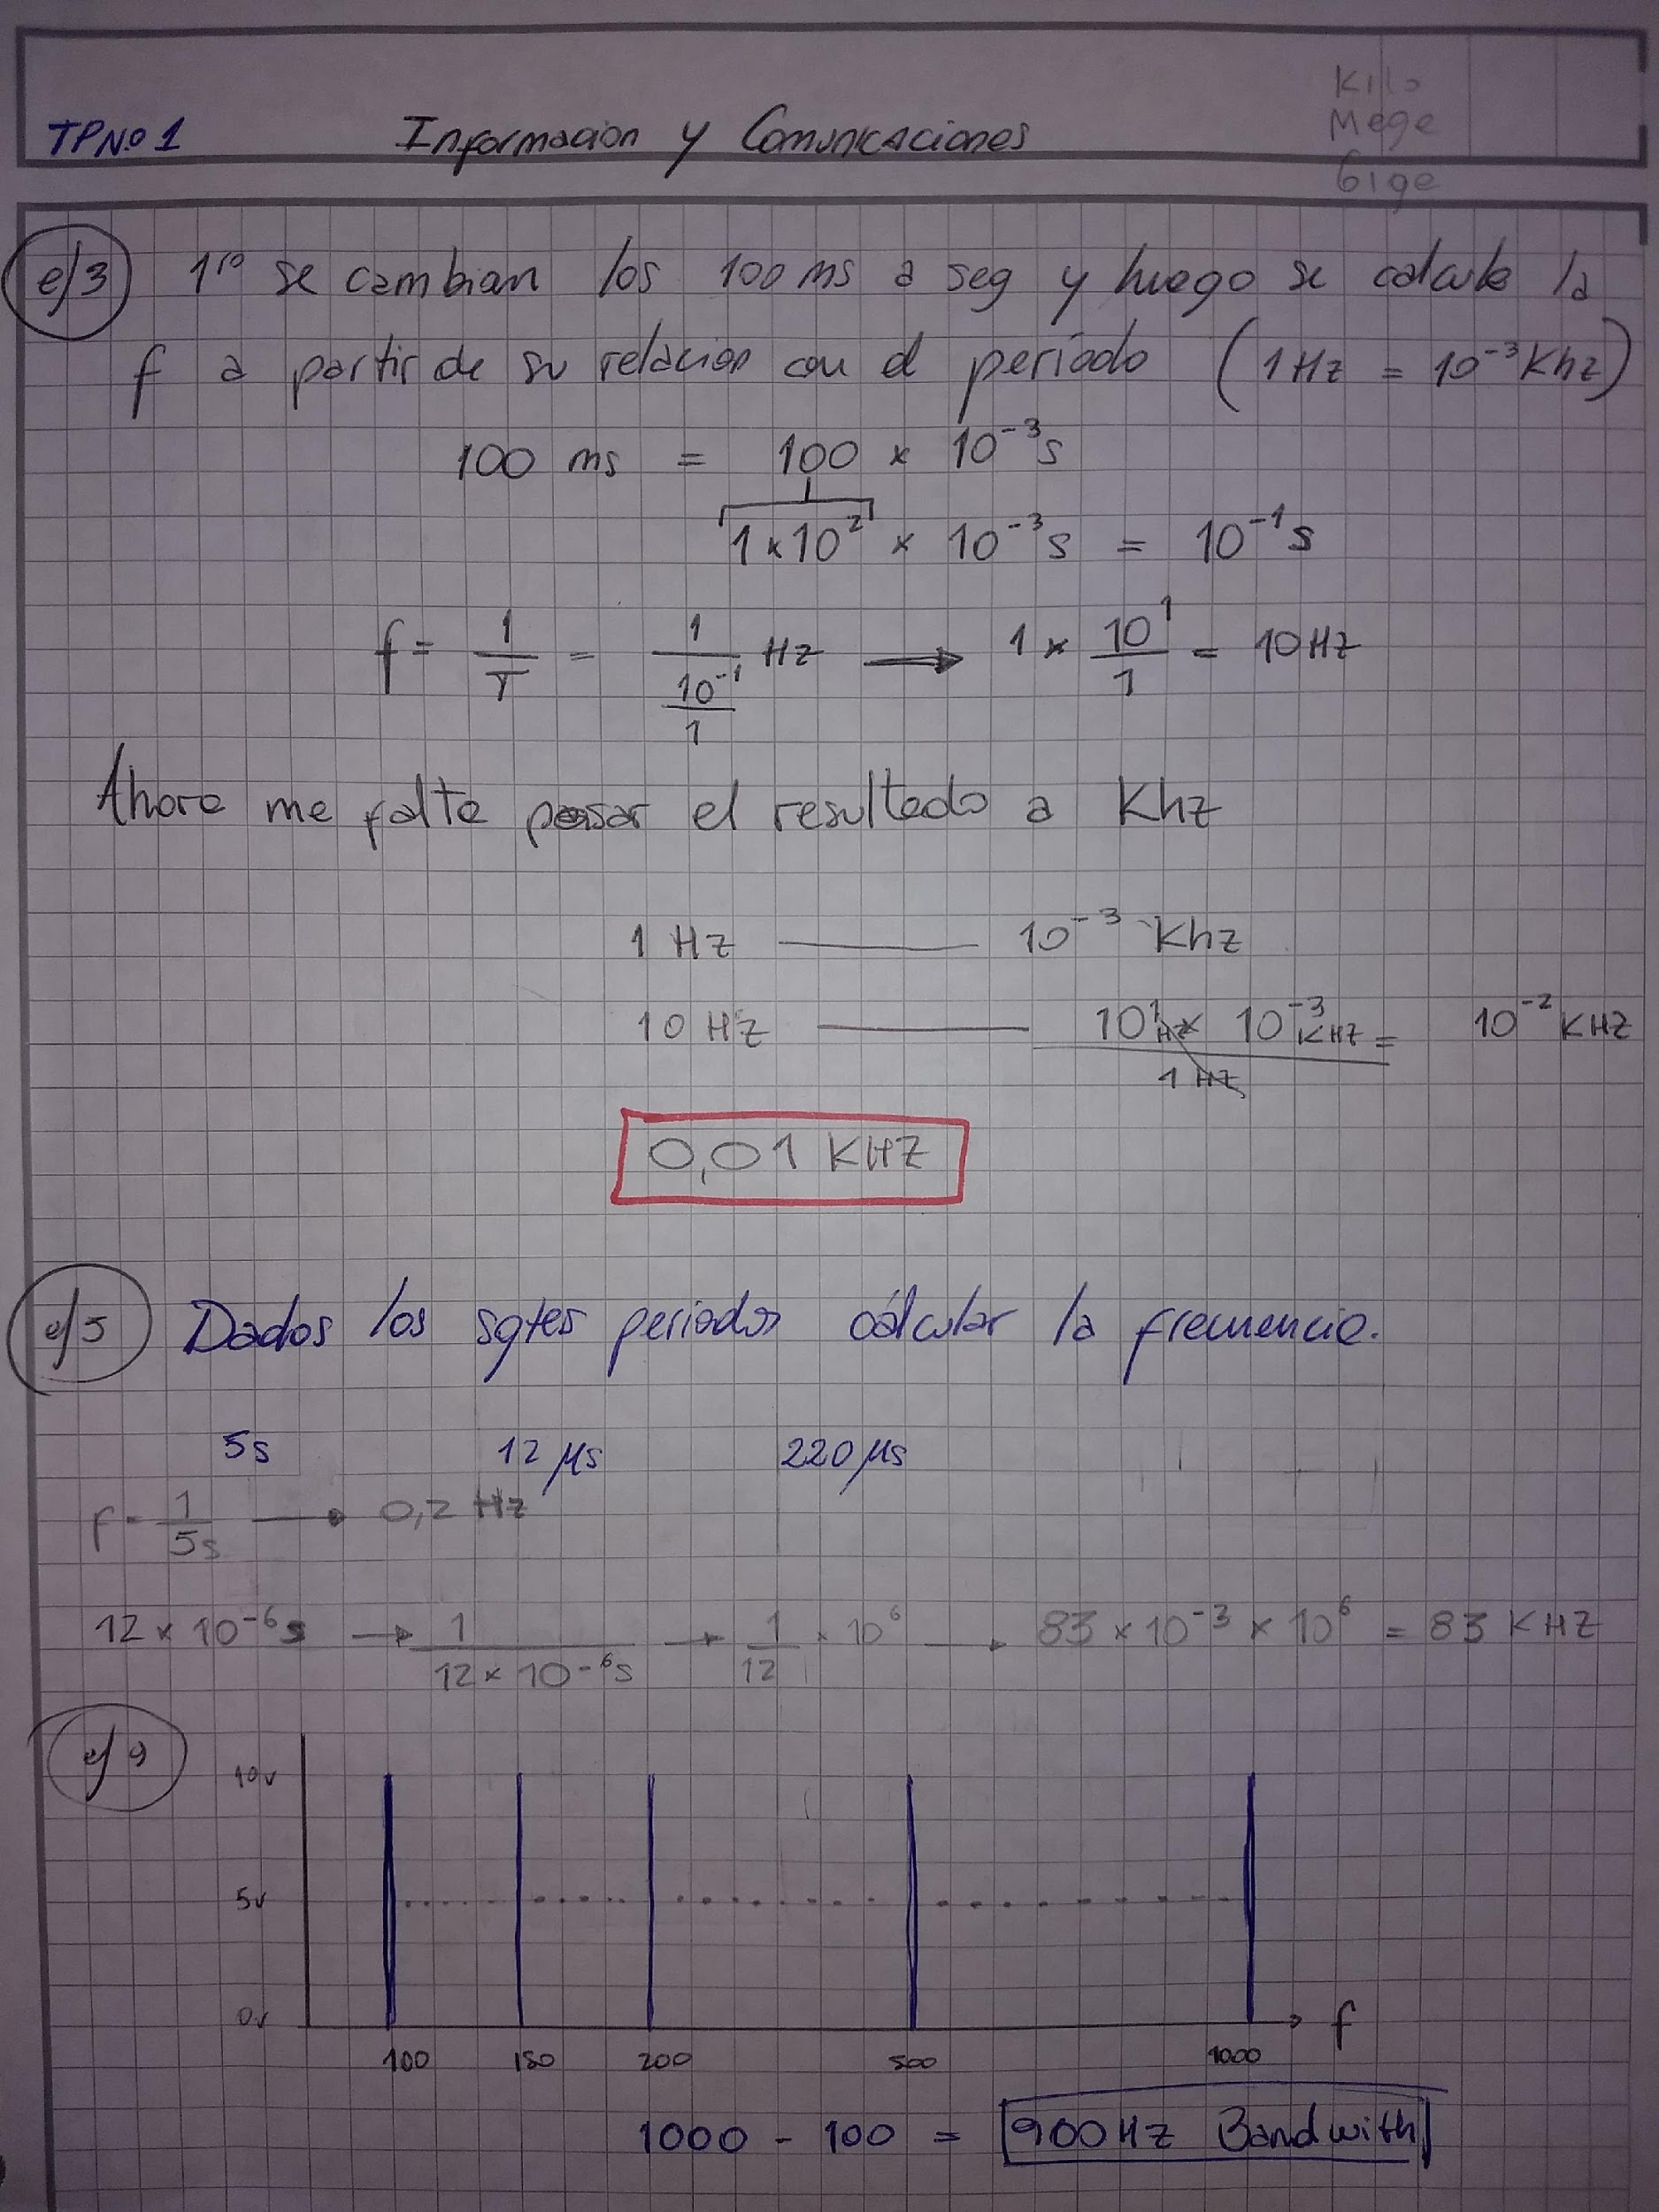 Kilo
Mege
Gige
TPNo1 Informacion y Comunicaciones
e/3 1ro se cambian los 100 ms a seg y luego se calcula la
f a partir de su relacion con el período (1 Hz = 10⁻³ Khz)
100 ms = 100 × 10⁻³ s
1 × 10² × 10⁻³ s = 10⁻¹ s
f = 1/T = 1/(10⁻¹/1) Hz → 1 × 10¹/1 = 10 Hz
Ahora me falta pasar el resultado a Khz
1 Hz — 10⁻³ Khz
10 Hz — 10¹ Hz × 10⁻³ KHZ / 1 Hz = 10⁻² KHZ
0,01 KHZ
e/5 Dados los sgtes periodos cálcular la frecuencia.
5s 12 µs 220 µs
f = 1/5s → 0,2 Hz
12 × 10⁻⁶ s → 1/(12 × 10⁻⁶ s) → 1/12 × 10⁶ → 83 × 10⁻³ × 10⁶ = 83 KHZ
e/9
10v
5v
0v
f
100 150 200 500 1000
1000 - 100 = 900 Hz Bandwith